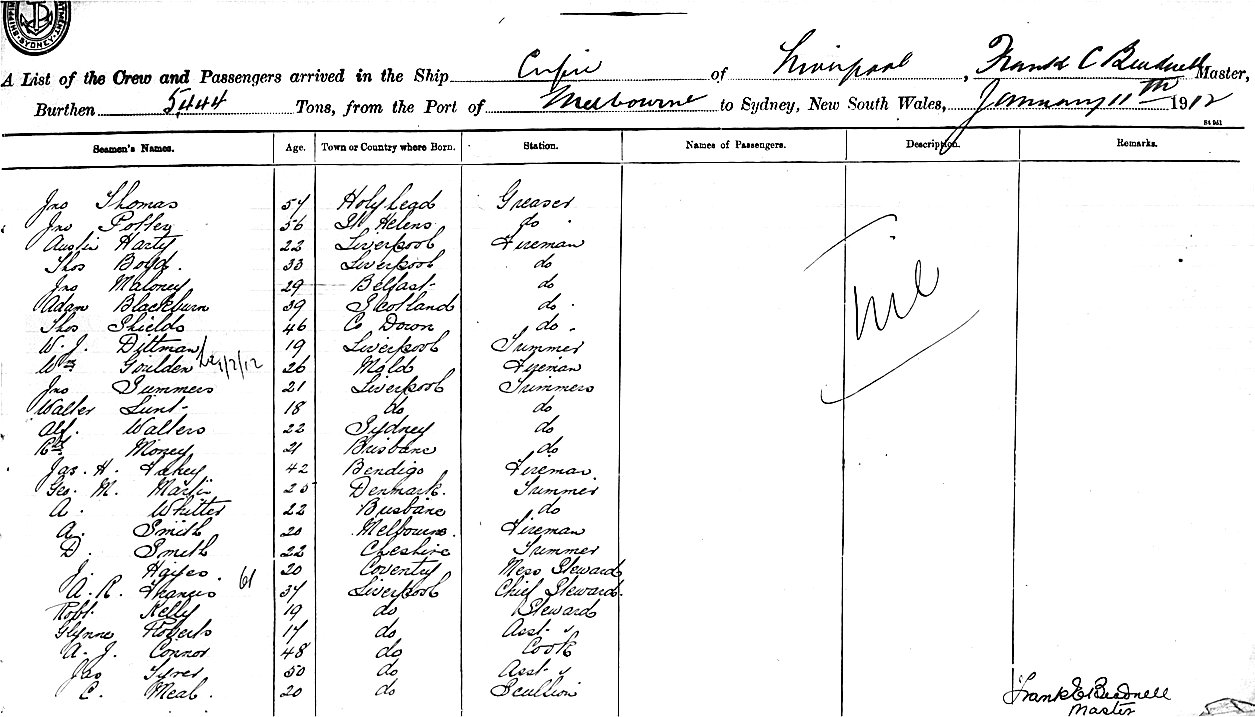 SYDNEY
A List of the Crew and Passengers arrived in the Ship of Liverpool, Frank C Master,
Burthen 5,444 Tons, from the Port of Melbourne to Sydney, New South Wales, January 11th 1912
Seamen's Names. Age. Town or Country where Born. Station. Names of Passengers. Description. Remarks.
Jno Thomas 54 Holyhead Greaser
Jno Potter 56 St Helens do
Austin Harty 22 Liverpool Fireman
Thos Boyd. 33 Liverpool do
Jno Maloney 29 Belfast do
Adam Blackburn 39 Scotland do
Thos Shields 46 Co Down do
W. J. Dittman 19 Liverpool Trimmer
Wm Goulden 1/2/12 26 Mold Fireman
Jno Summers 21 Liverpool Trimmers
Walter Lunt 18 do do
Alf. Walters 22 Sydney do
Money 21 Brisbane do
Jas. H. Fahey 42 Bendigo Fireman
Geo. M. Martin 25 Denmark. Trimmer
A. Whitter 22 Brisbane do
A. Smith 20 Melbourne. Fireman
D. Smith 22 Cheshire Trimmer
J. Hayes. 20 Coventry Mess Steward
A. R. Francis 61 34 Liverpool Chief Steward.
Robt. Kelly 19 do Steward
Glynne Roberts 17 do Asst. s
A. J. Connor 48 do Cook
Jas Tyrer 50 do Asst. s
C. Meal. 20 do Scullion
Nil
Frank C Master